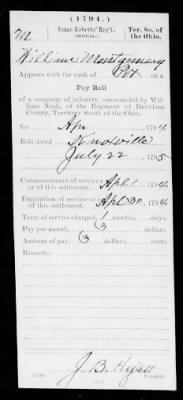 (1794.)
M
Isaac Roberts' Reg't.
(MILITIA.)
Ter. So. of
the Ohio.
William Montgomery
Appears with the rank of Pvt on a
Pay Roll
of a company of infantry, commanded by Wil-
liam Nash, of the Regiment of Davidson
County, Territory South of the Ohio,
for Apr, 1794
Roll dated Knoxville
July 22, 1795
Commencement of service
or of this settlement. Apl 1, 1794
Expiration of service
or of this settlement. Apl 30, 1794
Term of service charged, 1 months, days.
Pay per month, 3 dollars.
Amount of pay, 3 dollars, cents.
Remarks:
J. B. Hyatt
Copyist.